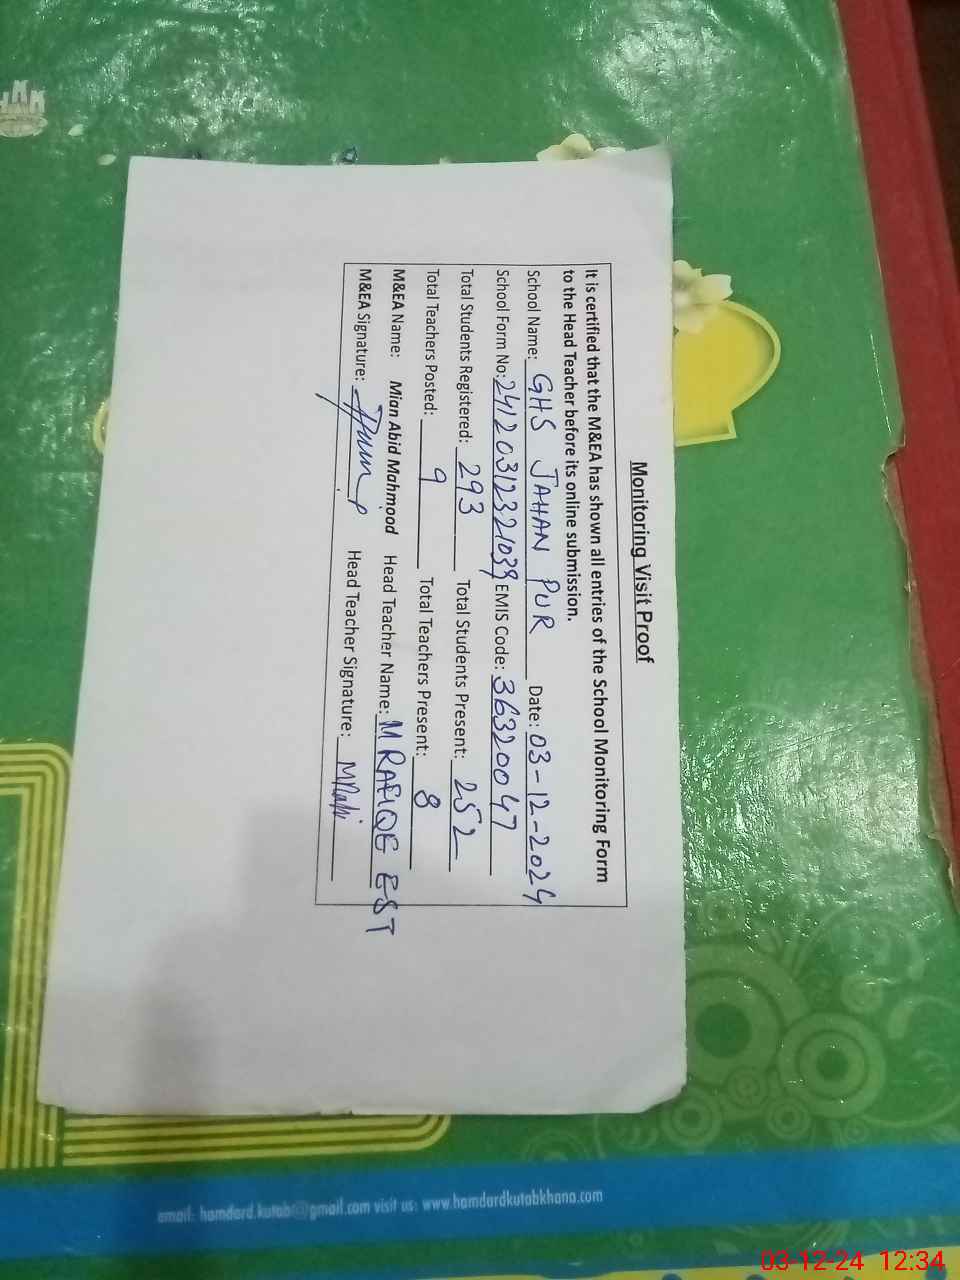 Monitoring Visit Proof
It is certified that the M&EA has shown all entries of the School Monitoring Form
to the Head Teacher before its online submission.
School Name: GHS JAHAN PUR Date: 03-12-2024
School Form No: 24120312321039 EMIS Code: 36320047
Total Students Registered: 293 Total Students Present: 252
Total Teachers Posted: 9 Total Teachers Present: 8
M&EA Name: Mian Abid Mahmood Head Teacher Name: M RAFIQE EST
M&EA Signature: Head Teacher Signature: MRafi
email: hamdard.kutab@gmail.com visit us: www.hamdardkutabkhana.com
03-12-24 12:34